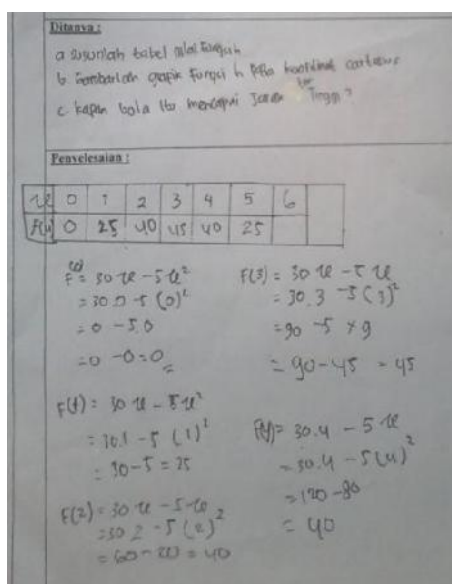 Ditanya :
a susunlah tabel nilai fungsi h
b Gambarlah grafik fungsi h pada koordinat cartesius
c Kapan bola itu mencapai tinggi ?
Penyelesaian :
x 0 1 2 3 4 5 6
F(x) 0 25 40 45 40 25
F(0) = 30x - 5x²
= 30.0 - 5 (0)²
= 0 - 5.0
= 0 - 0 = 0
F(1) = 30x - 5x²
= 30.1 - 5 (1)²
= 30 - 5 = 25
F(2) = 30x - 5x²
= 30 2 - 5 (2)²
= 60 - 20 = 40
F(3) = 30x - 5x
= 30.3 - 5 (3)²
= 90 - 5 x 9
= 90 - 45 = 45
F(4) = 30.4 - 5x
= 30.4 - 5(4)²
= 120 - 80
= 40